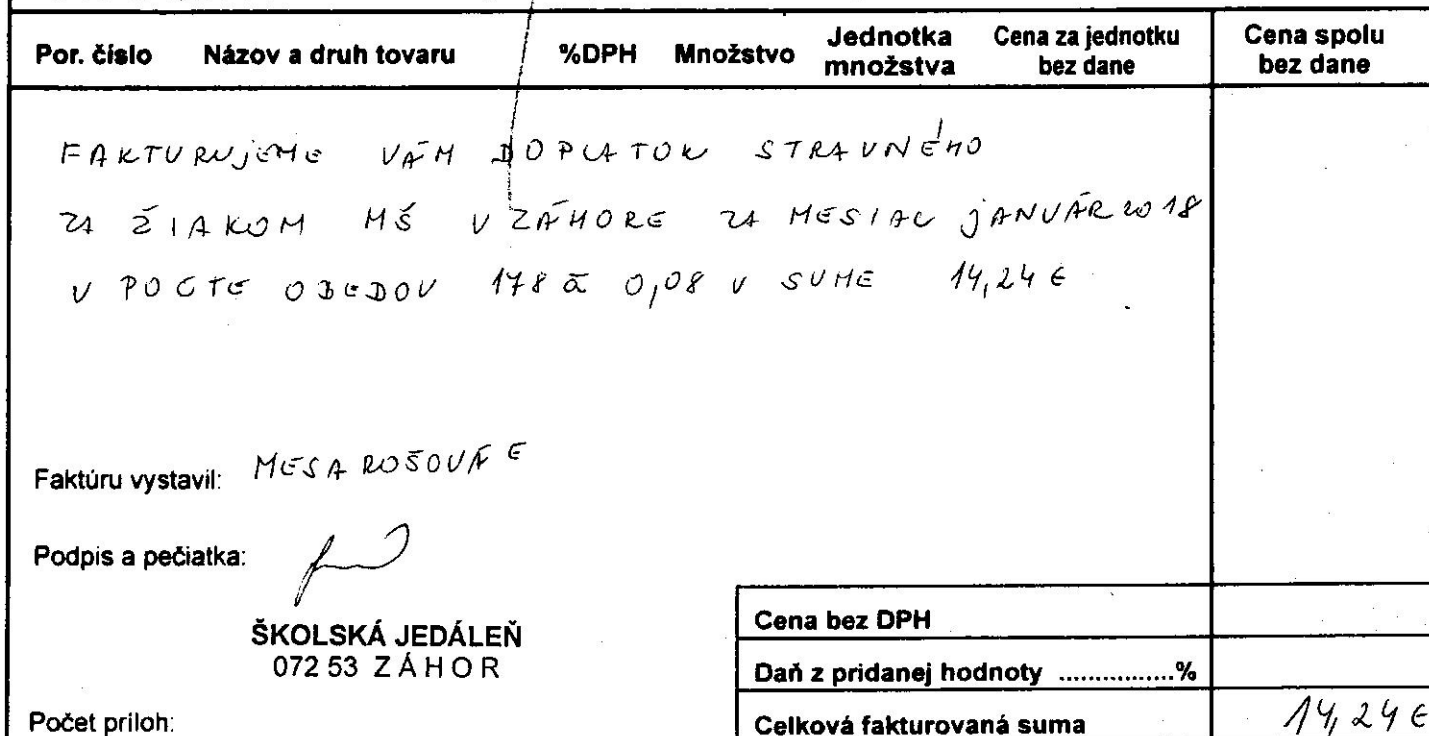 Por. číslo Názov a druh tovaru %DPH Množstvo Jednotka množstva Cena za jednotku bez dane Cena spolu bez dane
FAKTURUJEME VÁM DOPLATOK STRAVNÉHO
ZA ŽIAKOM MŠ V ZÁHORE ZA MESIAC JANUÁR 2018
V POČTE OBEDOV 178 á 0,08 V SUME 14,24 €
Faktúru vystavil: MESAROŠOVÁ E
Podpis a pečiatka:
ŠKOLSKÁ JEDÁLEŇ
072 53 ZÁHOR
Počet príloh:
Cena bez DPH
Daň z pridanej hodnoty ................%
Celková fakturovaná suma 14,24 €